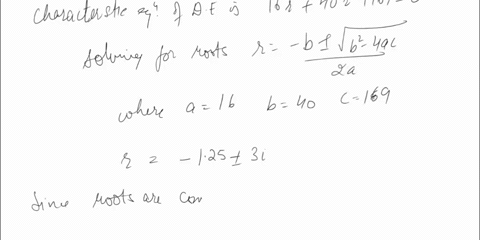 characteristic eqⁿ of D.E is 16r + 40r + 169 = 0
Solving for roots r = -b ± √b²-4ac / 2a
where a = 16 b = 40 c = 169
r = -1.25 ± 3i
Since roots are com